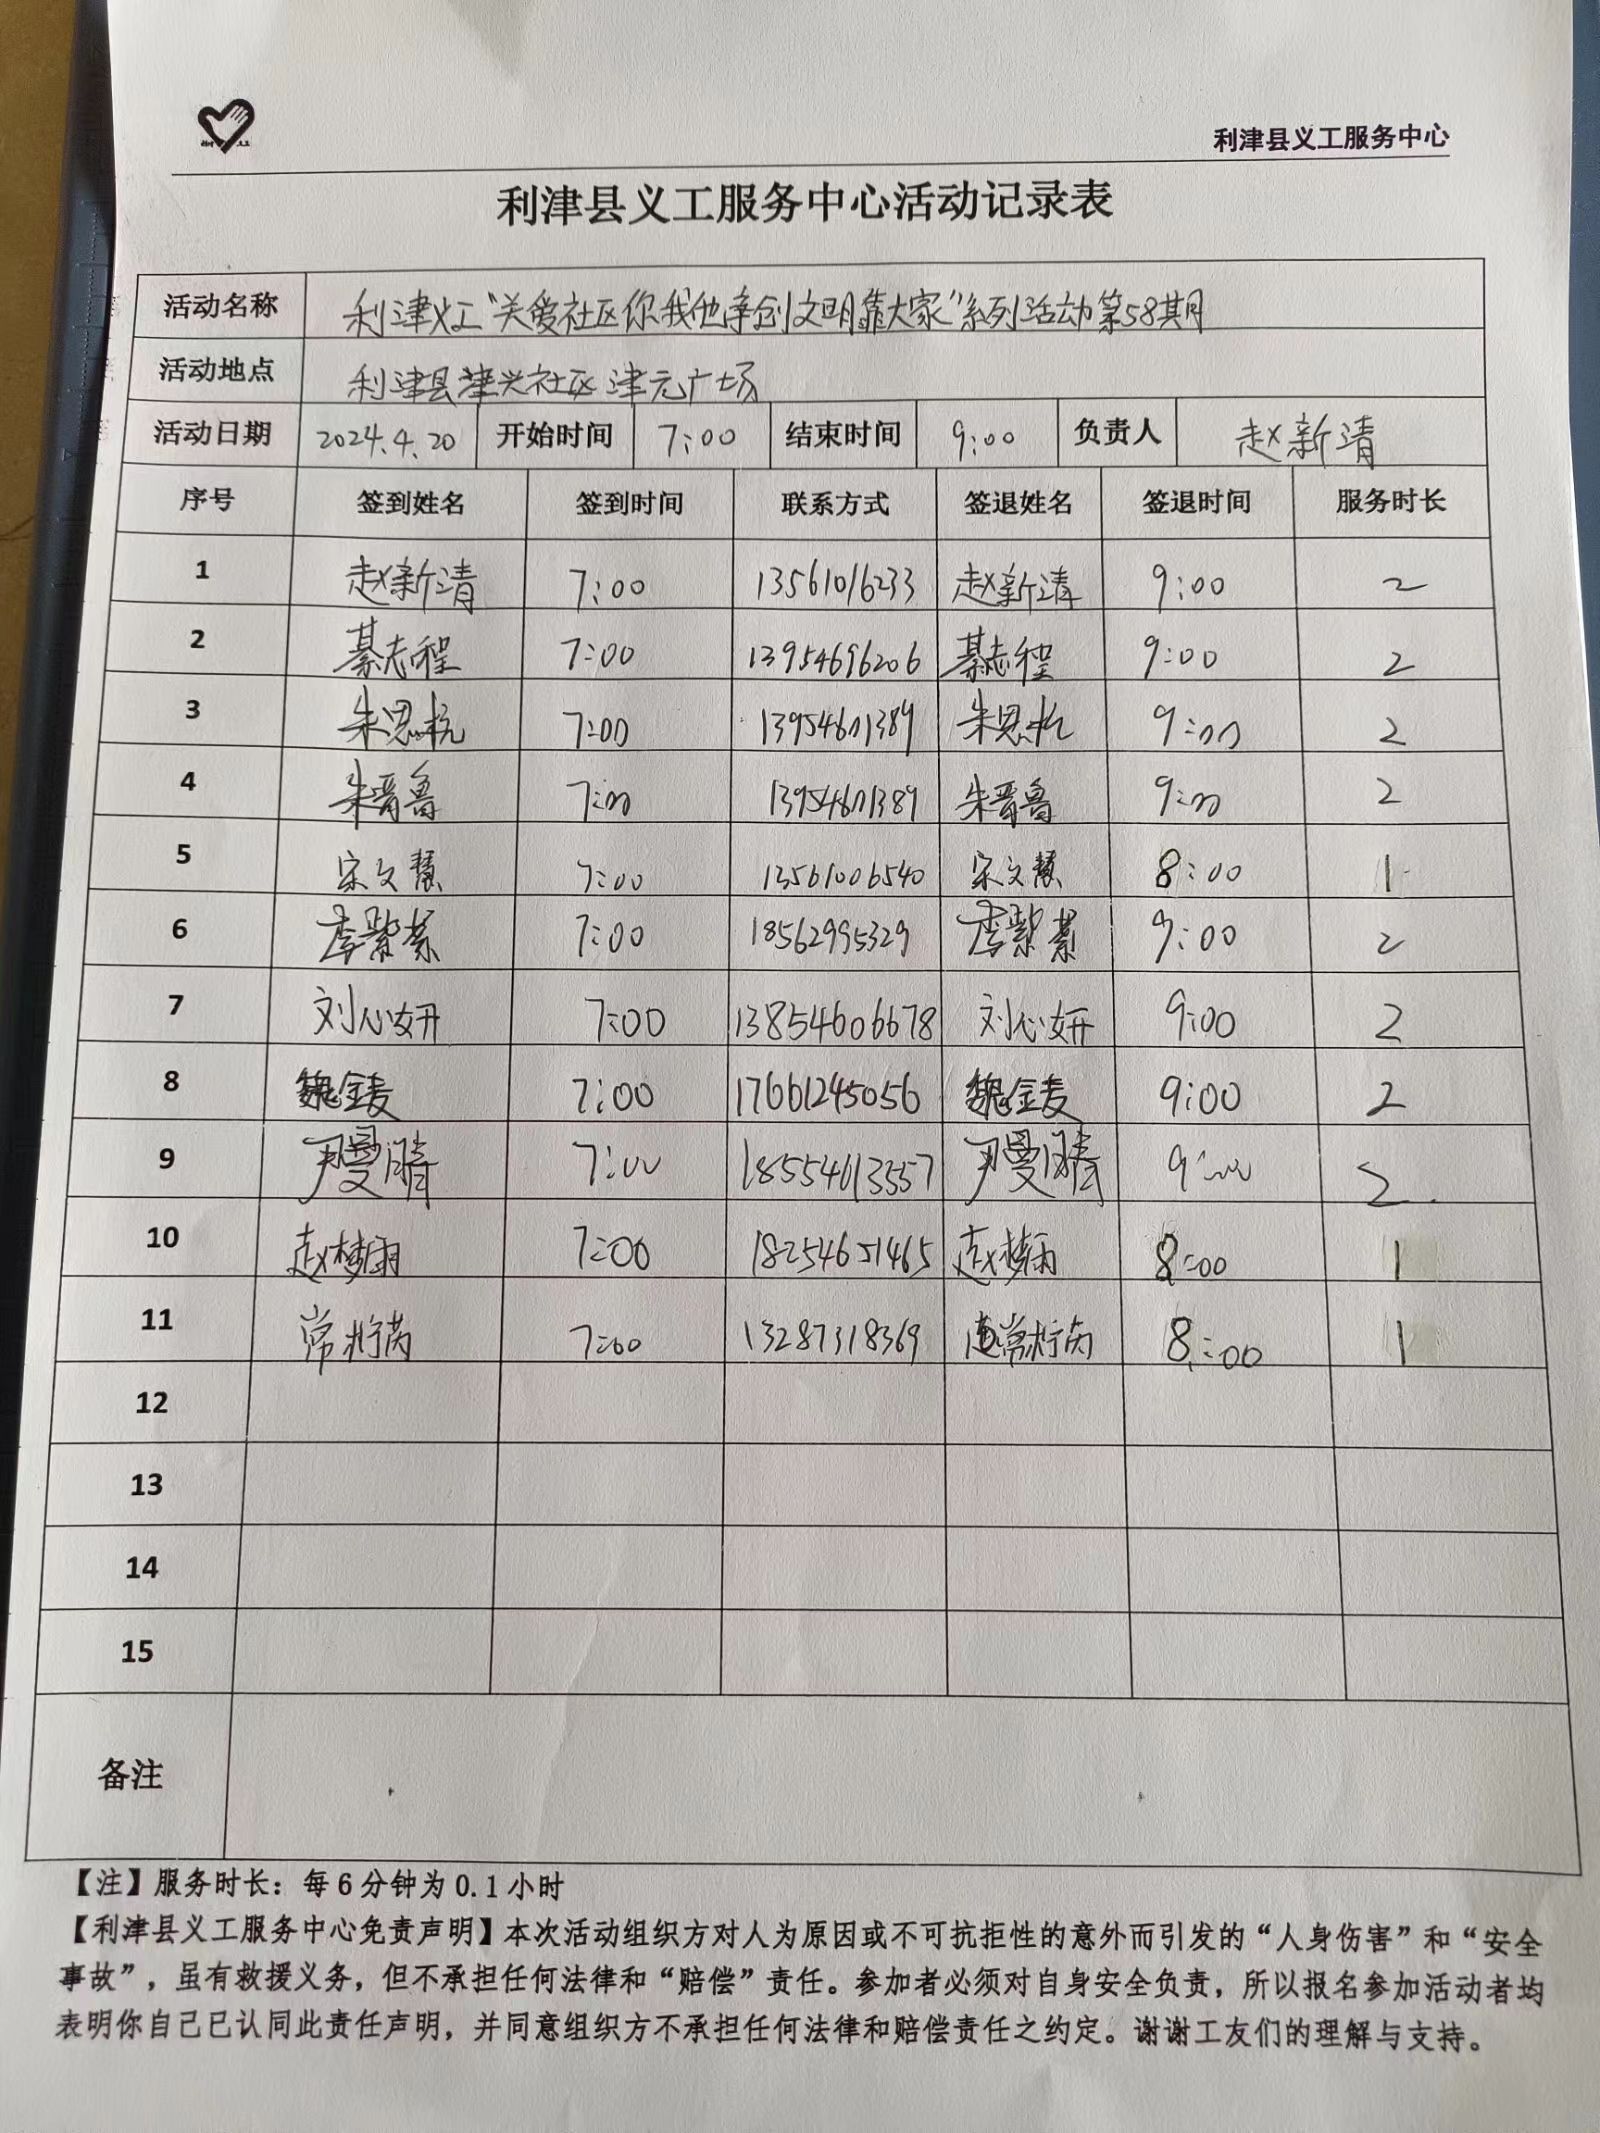 利津县义工服务中心
利津县义工服务中心活动记录表
活动名称 利津义工“关爱社区你我他争创文明靠大家”系列活动第58期
活动地点 利津县津兴社区津元广场
活动日期 2024.4.20 开始时间 7:00 结束时间 9:00 负责人 赵新清
序号 签到姓名 签到时间 联系方式 签退姓名 签退时间 服务时长
1 赵新清 7:00 13561016233 赵新清 9:00 2
2 綦志程 7:00 13954696206 綦志程 9:00 2
3 朱思杭 7:00 13954601389 朱思杭 9:00 2
4 朱晋鲁 7:00 13954601389 朱晋鲁 9:00 2
5 宋文慧 7:00 13561006540 宋文慧 8:00 1
6 李紫萦 7:00 18562995329 李紫萦 9:00 2
7 刘心妍 7:00 13854606678 刘心妍 9:00 2
8 魏金麦 7:00 17661245056 魏金麦 9:00 2
9 尹曼晴 7:00 18554613557 尹曼晴 9:00 2
10 赵梦雨 7:00 18254651465 赵梦雨 8:00 1
11 常桁芮 7:00 13287318369 常桁芮 8:00 1
12
13
14
15
备注
【注】服务时长：每6分钟为0.1小时
【利津县义工服务中心免责声明】本次活动组织方对人为原因或不可抗拒性的意外而引发的“人身伤害”和“安全
事故”，虽有救援义务，但不承担任何法律和“赔偿”责任。参加者必须对自身安全负责，所以报名参加活动者均
表明你自己已认同此责任声明，并同意组织方不承担任何法律和赔偿责任之约定。谢谢工友们的理解与支持。